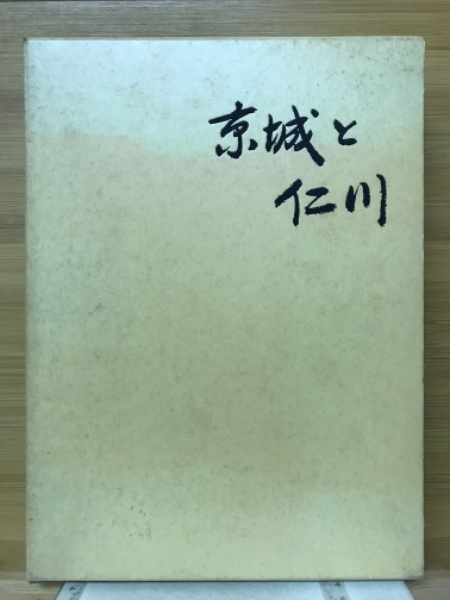 京城と
仁川